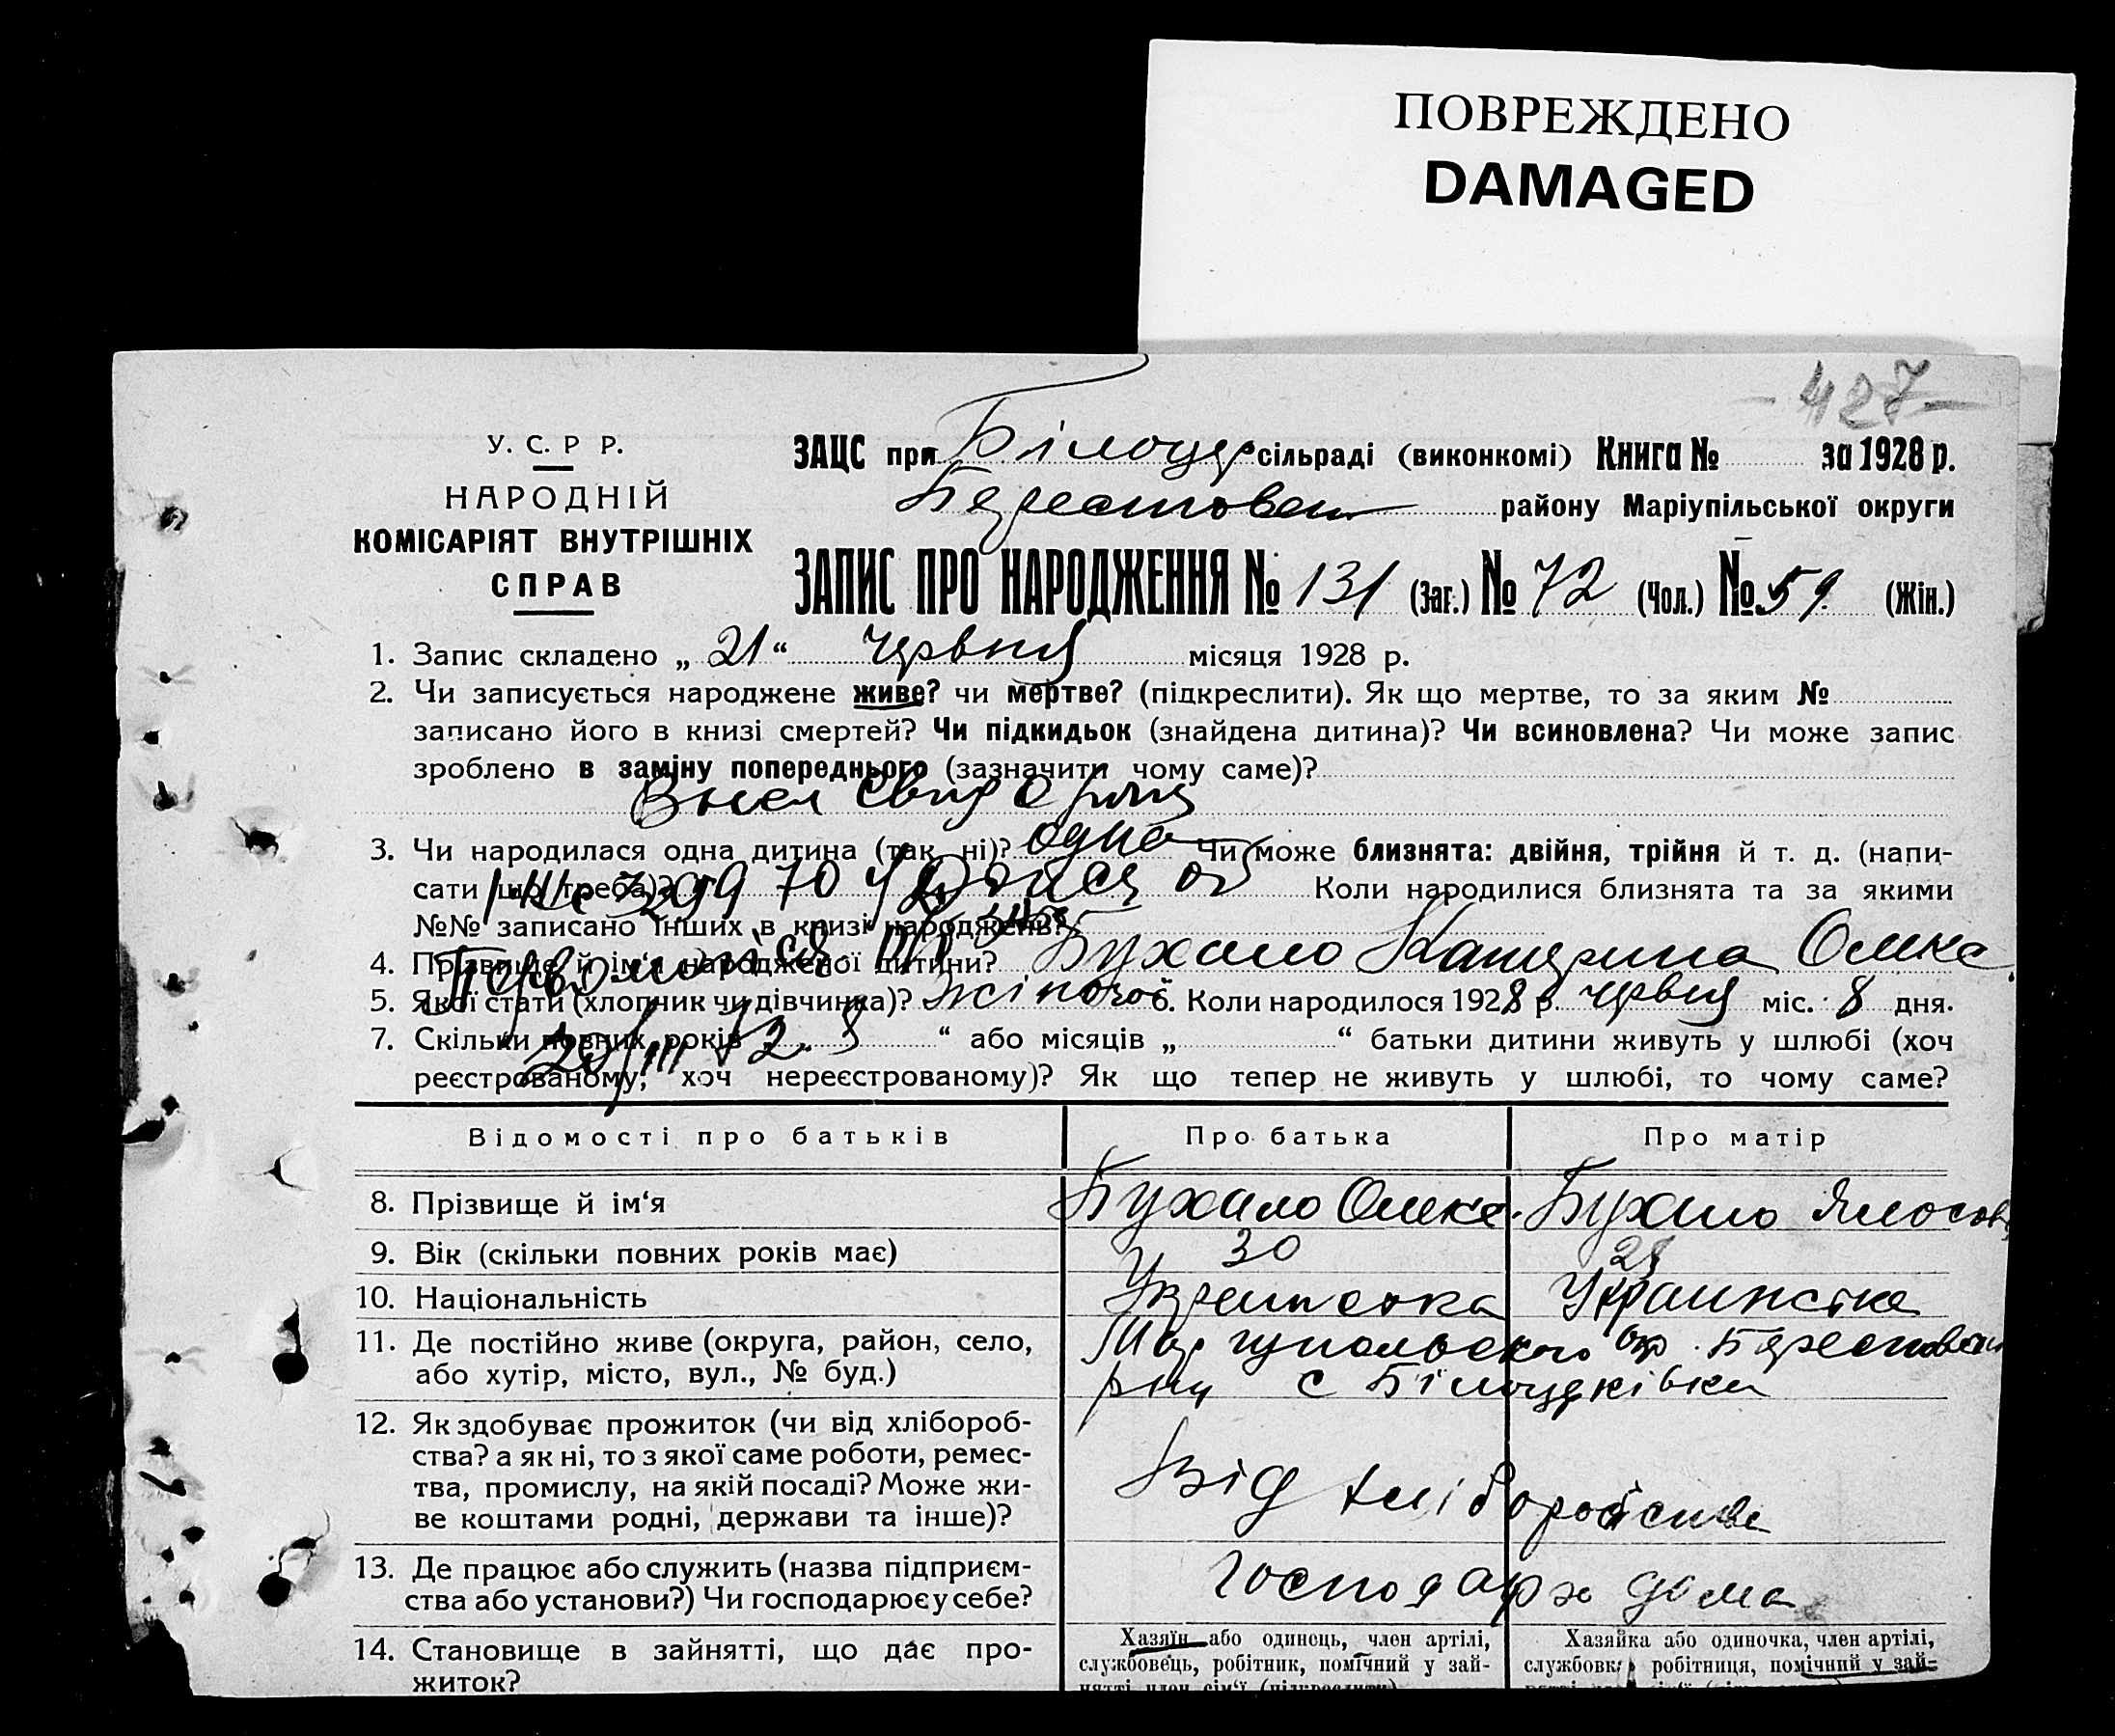 ПОВРЕЖДЕНО
DAMAGED
427
У. С. Р Р.
НАРОДНІЙ
КОМІСАРІЯТ ВНУТРІШНІХ
СПРАВ
ЗАЦС при Білоцер сільраді (виконкомі) Книга № за 1928 р.
Берестовськ району Маріупільської округи
ЗАПИС ПРО НАРОДЖЕННЯ № 131 (Заг.) № 72 (Чол.) № 59. (Жін.)
1. Запис складено „ 21 “ червня місяця 1928 р.
2. Чи записується народжене живе? чи мертве? (підкреслити). Як що мертве, то за яким №
записано його в книзі смертей? Чи підкидьок (знайдена дитина)? Чи всиновлена? Чи може запис
зроблено в заміну попереднього (зазначити чому саме)?
3. Чи народилася одна дитина (так, ні)? одна Чи може близнята: двійня, трійня й т. д. (напи-
сати що треба)? Коли народилися близнята та за якими
№№ записано інших в книзі народжень?
4. Прізвище й ім‘я народженої дитини? Бухало Катерина Олекс.
5. Якої стати (хлопчик чи дівчинка)? жіночої 6. Коли народилося 1928 р. червня міс. 8 дня.
7. Скільки повних років 8 “ або місяців „ “ батьки дитини живуть у шлюбі (хоч
реєстрованому, хоч нереєстрованому)? Як що тепер не живуть у шлюбі, то чому саме?
20/III 72.
Відомості про батьків Про батька Про матір
8. Прізвище й ім‘я Бухало Олекс. Бухало
9. Вік (скільки повних років має) 30
10. Національність Украинска Украинска
11. Де постійно живе (округа, район, село,
або хутір, місто, вул., № буд.)
Маріупольского окр. Берестовськ
рну с Білоцерківка
12. Як здобуває прожиток (чи від хлібороб-
ства? а як ні, то з якої саме роботи, ремес-
тва, промислу, на якій посаді? Може жи-
ве коштами родні, держави та інше)?
Від хліборобства
13. Де працює або служить (назва підприєм-
ства або установи?) Чи господарює у себе?
господарх дома
14. Становище в зайнятті, що дає про-
житок?
Хазяїн або одинець, член артілі,
службовець, робітник, помічний у зай-
нятті член сім‘ї (підкреслити)
Хазяйка або одиночка, член артілі,
службовка, робітниця, помічний у зай-